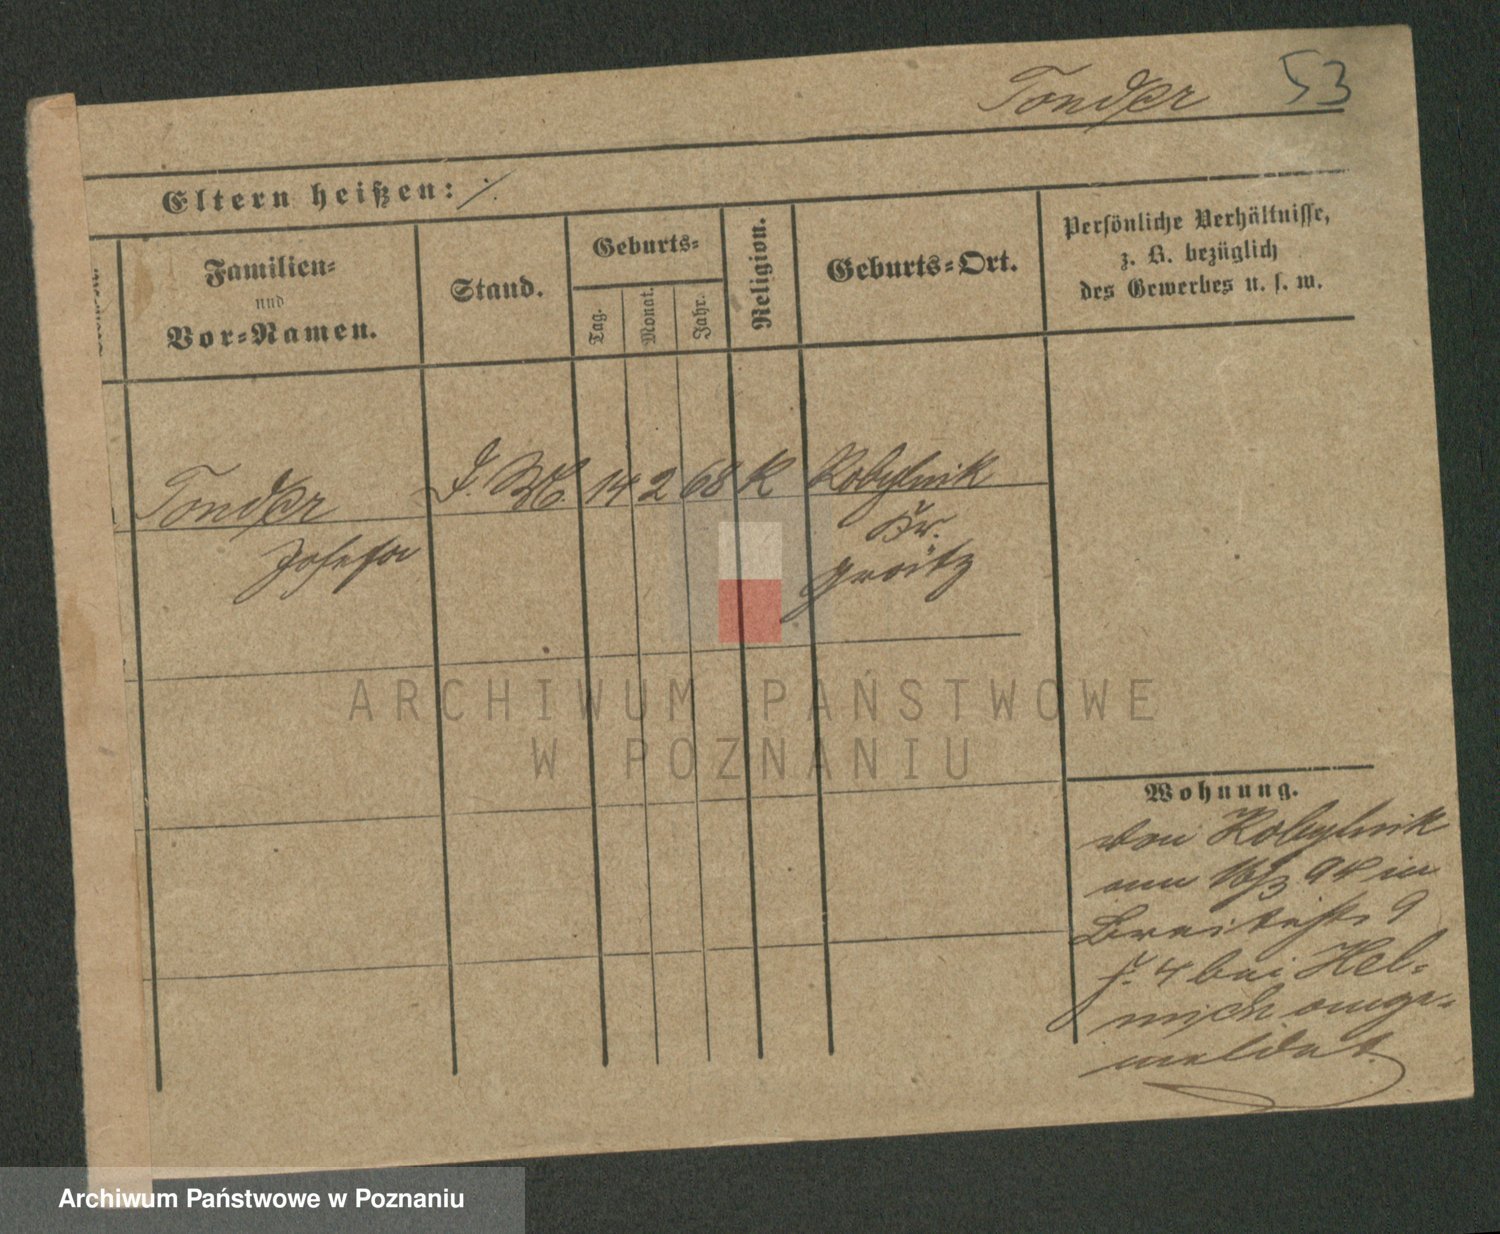 Tonder 53
Eltern heißen: ./.
Familien-
und
Vor-Namen.
Stand.
Geburts-
Tag.
Monat.
Jahr.
Religion.
Geburts-Ort.
Persönliche Verhältnisse,
z. B. bezüglich
des Gewerbes u. s. w.
Tonder
Josefa
14 2 68 K
Kobylnik
Kr.
Grätz
ARCHIWUM PAŃSTWOWE
W POZNANIU
Wohnung.
von Kobylnik
am 16/3 94 in
Breitestr. 9
4 bei Hel-
mich ange-
meldet.
Archiwum Państwowe w Poznaniu